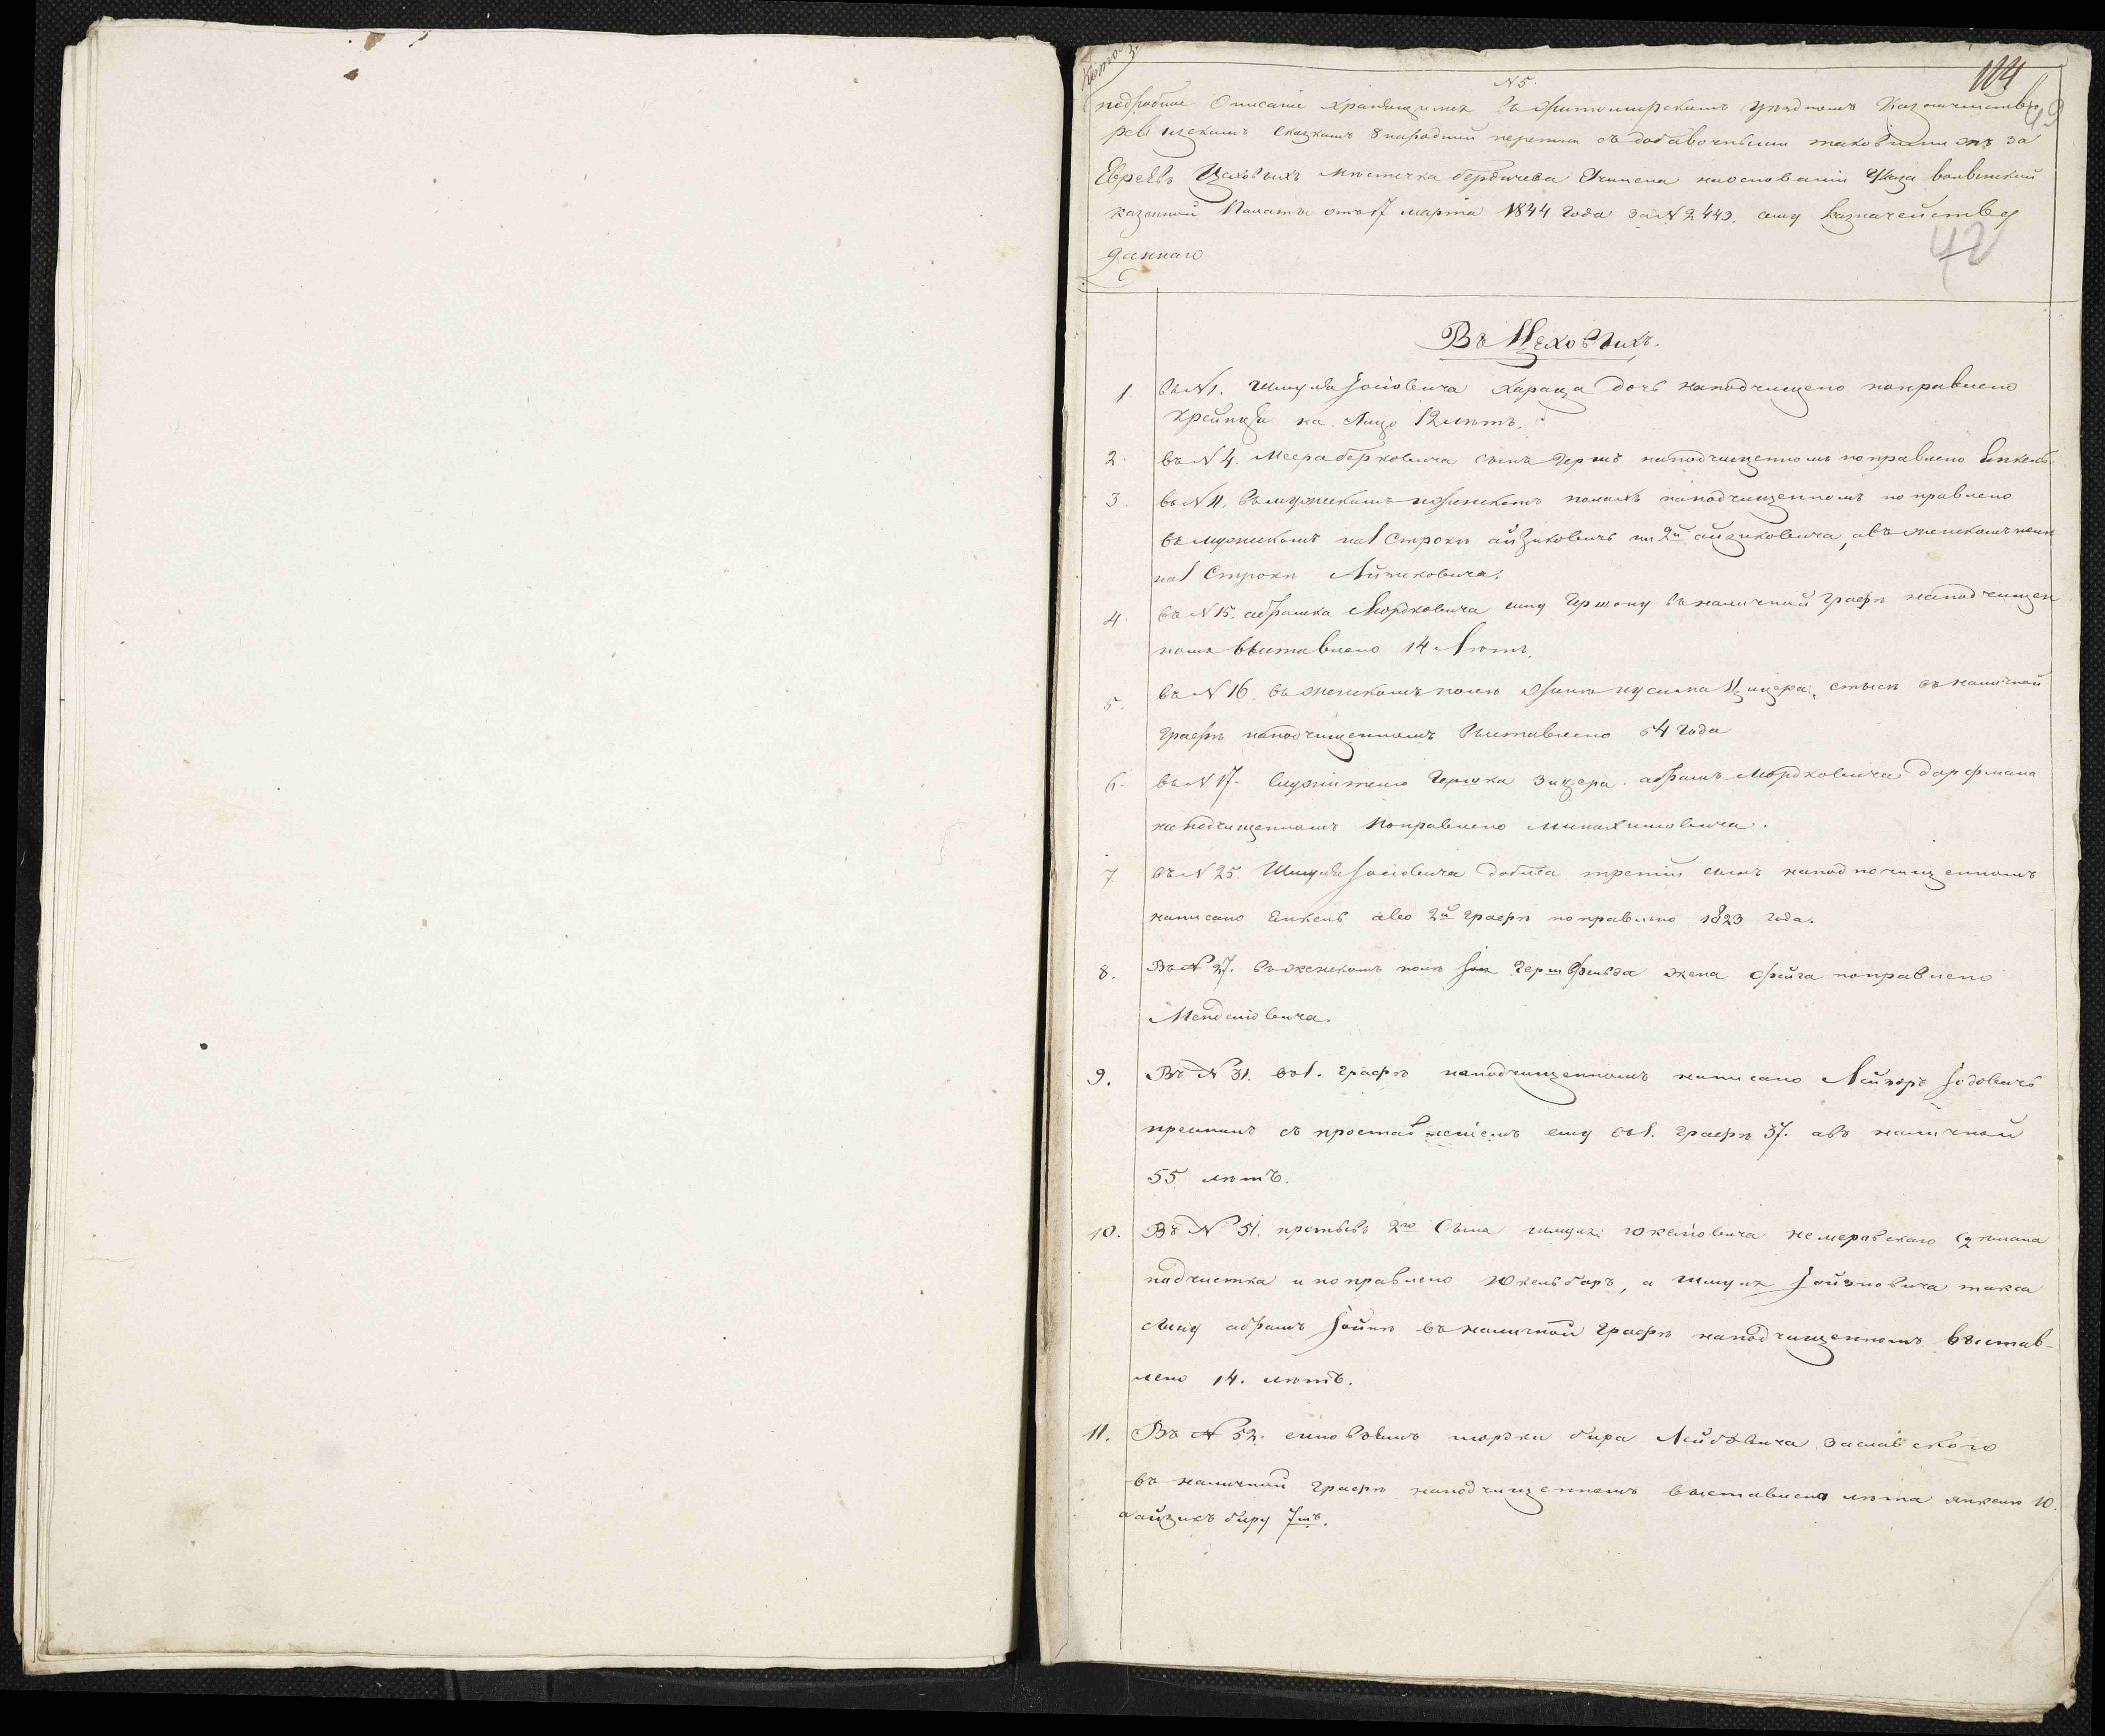 Копія
114
49
N5.
подробное Описаніе хранящимся въ Житомирскомъ Уѣздномъ Казначействѣ
ревизскимъ сказкамъ 8 народной переписи съ добавочными таковыми жъ за
Евреевъ Цеховыхъ Мѣстечка бердичева Учинена наоснованіи Указа волынской
казенной Палаты отъ 17 марта 1844 Года за N 2443. сему Казначейству
даннаго
42
Въ Цеховыхъ.
1 въ N1. Шмуля Іосіовича Хараца дочь наподчищено поправлено
Крейнця на Лицо 12 лѣтъ.
2. въ N 4. Меера берковича сынъ Гершъ наподчищенномъ поправлено Янкель.
3. въ N 11. Въ мужескомъ и женскомъ полахъ наподчищенномъ поправлено
въ мужскомъ на 1 Строкѣ айзиковичъ на 2й айзиковича, а въ женскомъ полѣ
на 1 Строкѣ Айзиковича.
4. въ N 15. абрамка Мордковича сыну Гершону въ наличной графѣ наподчищен
номъ выставлено 14 Лѣтъ.
5. въ N 16. въ женскомъ полѣ жинѣ нусина Цицера. въ наличной
графѣ наподчищенномъ выставлено 54 Года
6. въ N 17. Гершка Зицера. абрамъ Мордковича дорфмана
наподчищенномъ Поправлено Минахимовича.
7 въ N 25. Шмуля Іосіовича третій сынъ наподчищенномъ
написано Янкель а во 2й графѣ поправлено 1823 года.
8. Въ N 27. въ женскомъ полѣ Гершфельда жена Фейга поправлено
Менделіовича.
9. Въ N 31. въ 1. графѣ наподчищенномъ написано Лейзоръ
съ проставленіемъ ему въ 1. графѣ 37. а въ наличной
55 лѣтъ.
10. Въ N 51. противъ 2го Сына Шмуля Юкеліовича немеровскаго
подчистка и поправлено Юкель беръ, а Шмуля
Сыну абрамъ въ наличной графѣ наподчищенномъ выстав-
лено 14. лѣтъ.
11. Въ N 52. сыновьямъ мордки бера Лейбовича заславского
въ наличной графѣ наподчищенномъ выставлено лѣта янкелю 10.
а айзикъ беру 7мъ.